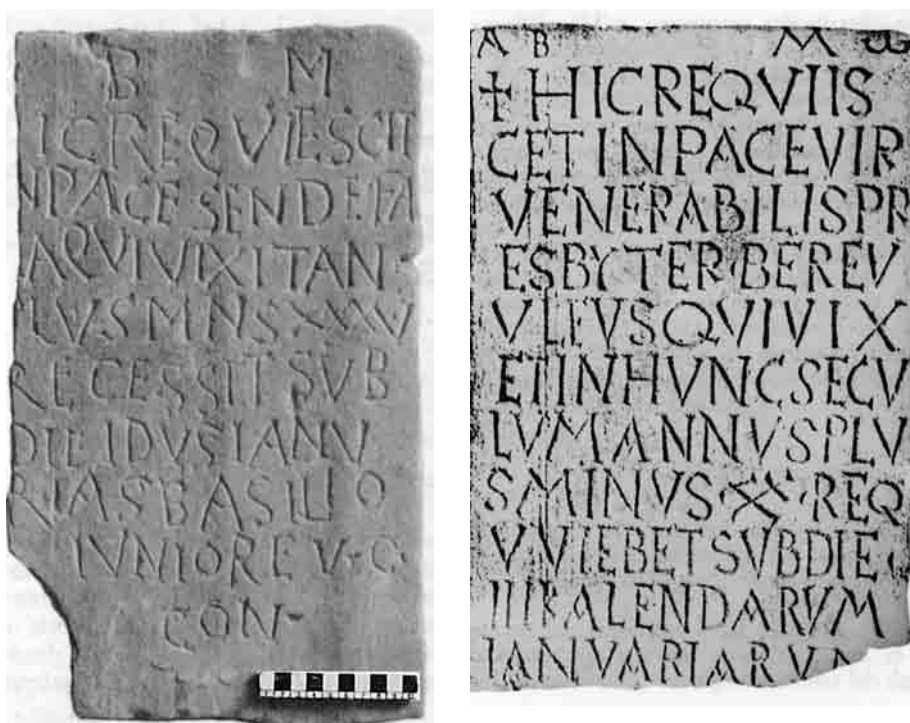 B M
HIC REQVIESCIT
INPACE SENDEFA
RAQVIVIXITAN·
PLVSMNSXXXV
RECESSIT SVB
DIE IDVSIANV
RIASBASILIO
IVNIOREV·C·
CON·
A B M ω
+ HICREQVIIS
CETINPACEVIR
VENERABILISPR
ESBYTER·BEREV
VLFVSQVIVIX
ETINHVNCSECV
LVMANNVSPLV
SMINVS·XL·REQ
VVIEBETSVBDIE·
IIIKALENDARVM
IANVARIARVM